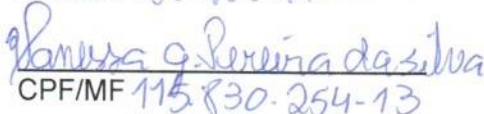 Vanessa G. Pereira da Silva
CPF/MF 115.830.254-13